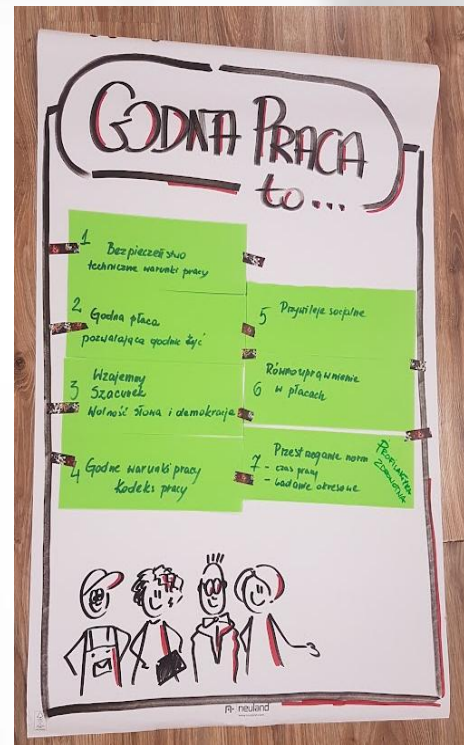 GODNA PRACA
to...
1
Bezpieczeństwo
techniczne warunki pracy
2
Godna płaca
pozwalająca godnie żyć
3
Wzajemny
Szacunek
Wolność słowa i demokracja
4
Godne warunki pracy
Kodeks pracy
5
Przywileje socjalne
6
Równouprawnienie
w płacach
7
Przestrzeganie norm
- czas pracy
- badanie okresowe
PROFILAKTYKA
ZDROWOTNA
neuland